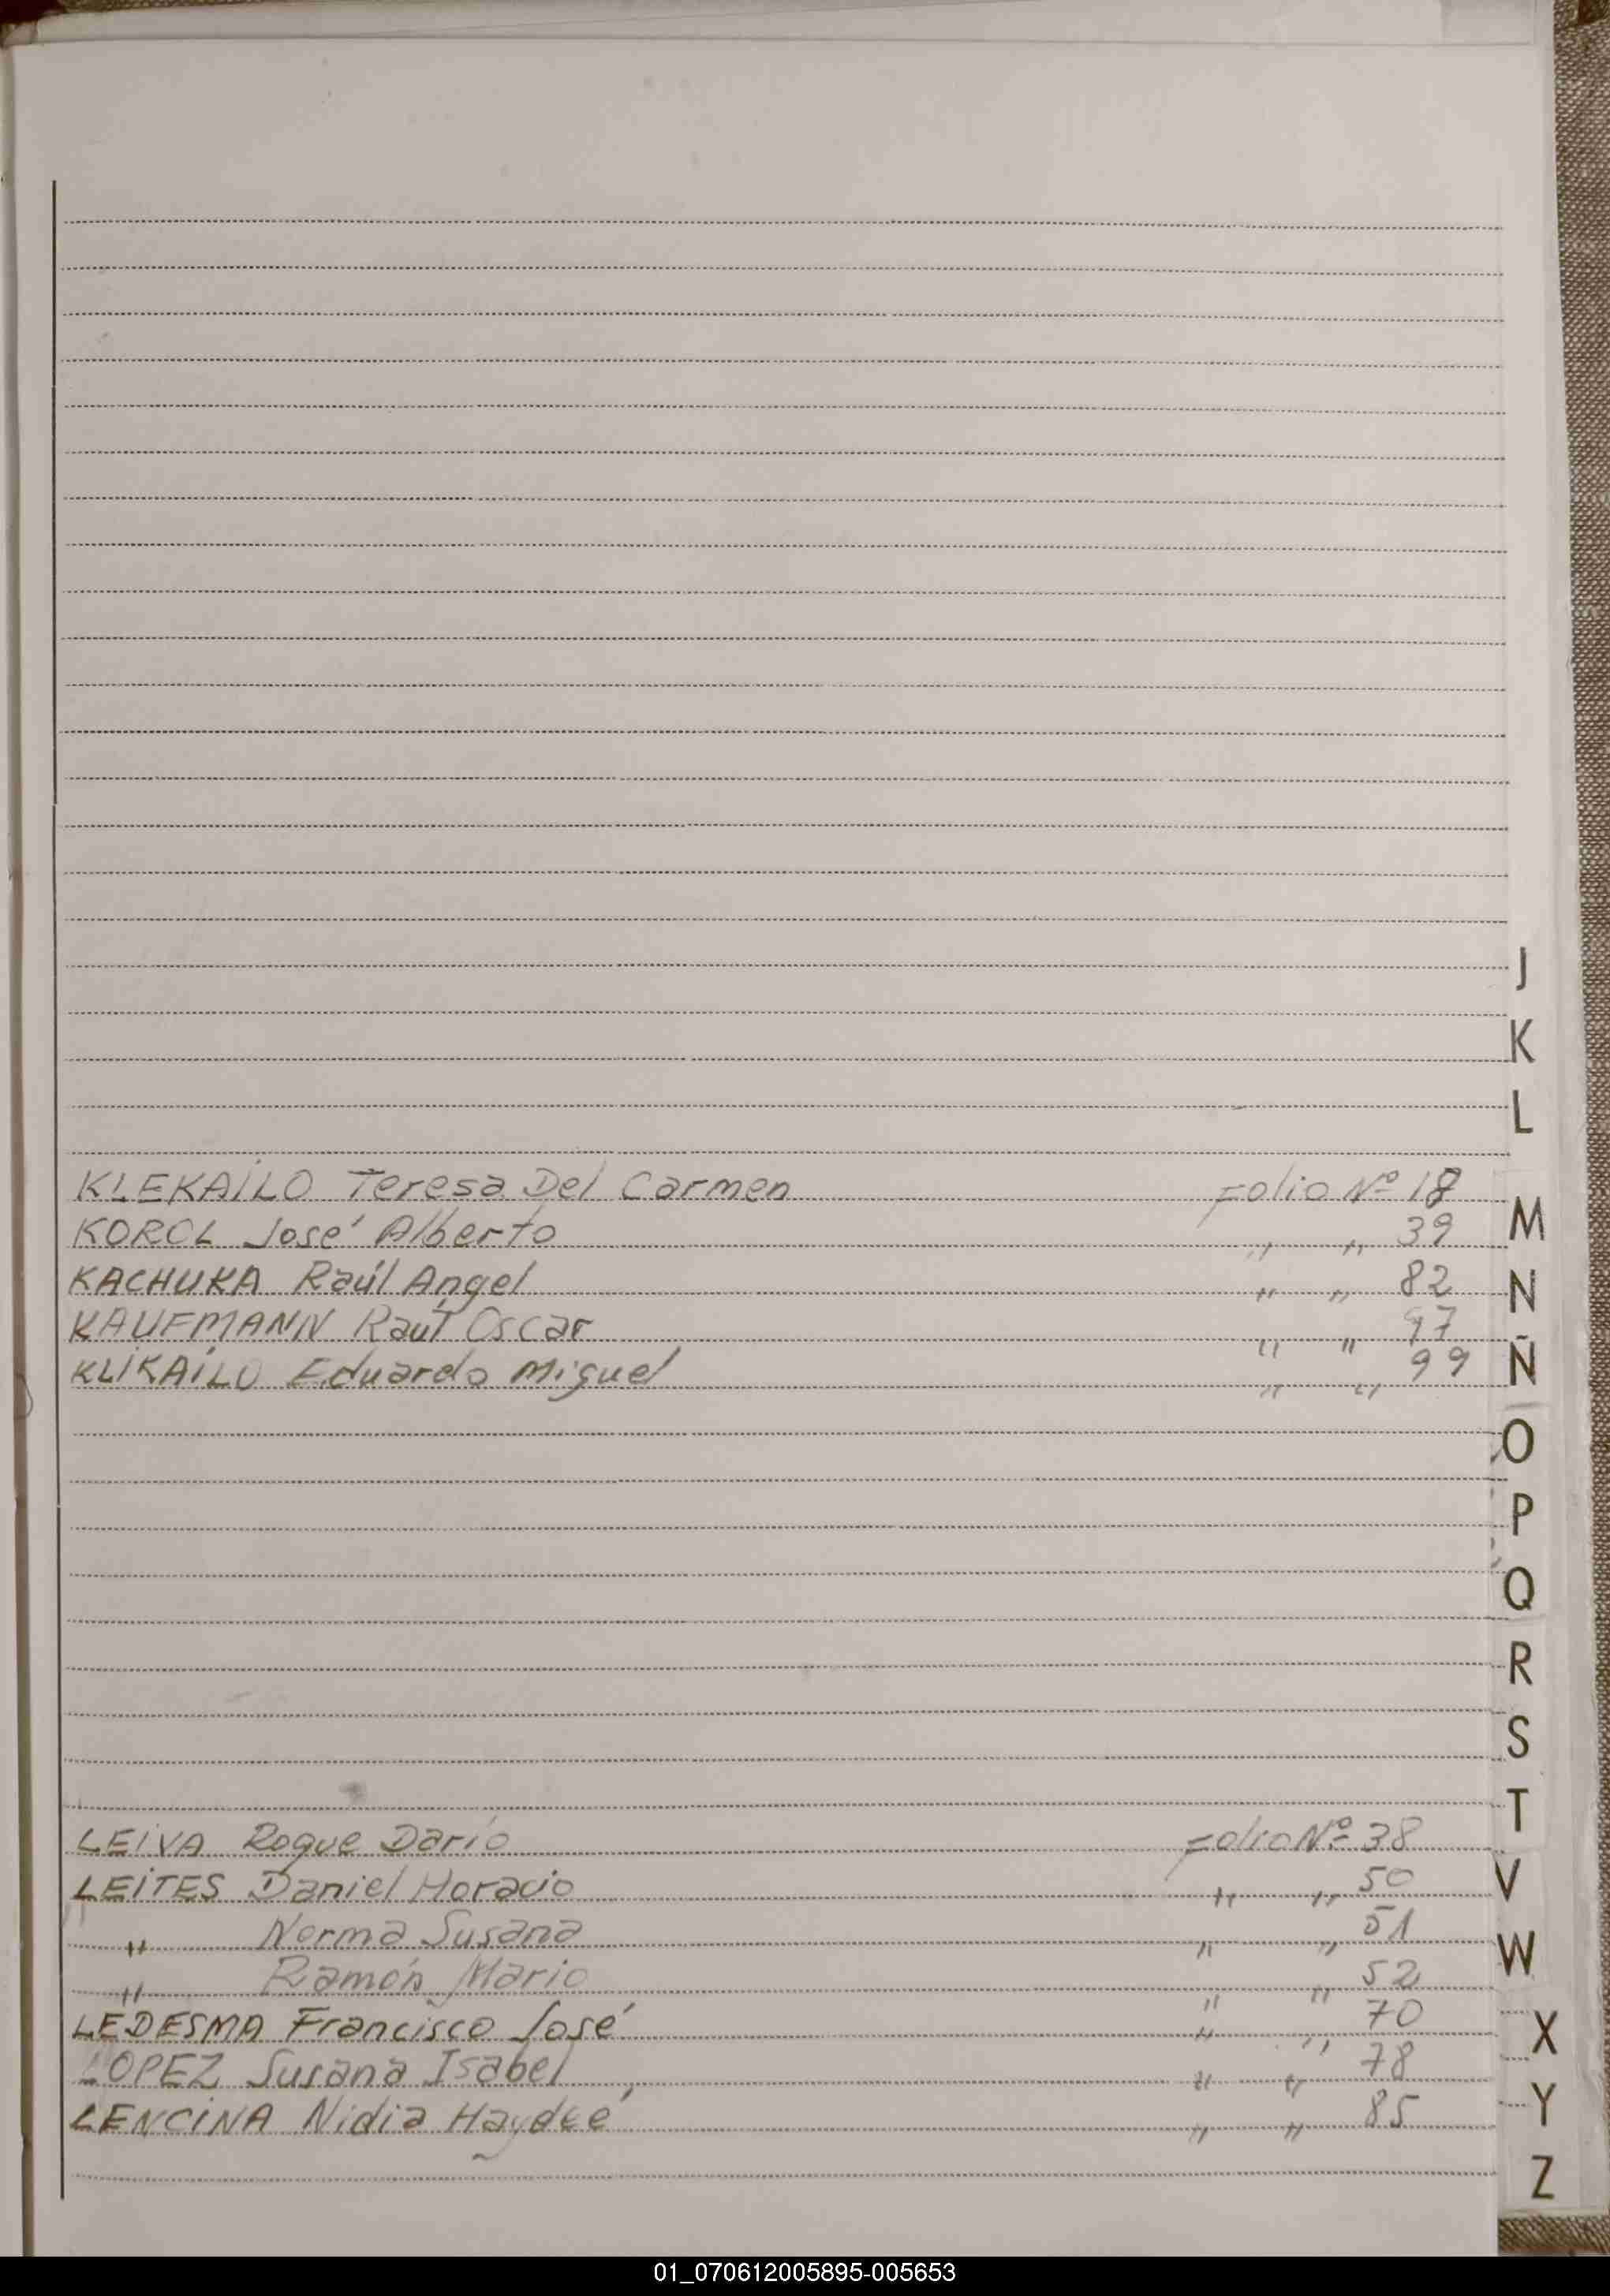 J
K
L
KLEKAiLO Teresa Del Carmen Folio Nº 18
KOROL José Alberto " " 39
KACHUKA Raúl Angel " " 82
KAUFMANN Raúl Oscar " " 97
KLiKAiLO Eduardo Miguel " " 99
M
N
Ñ
O
P
Q
R
S
T
LEiVA Roque Darío Folio Nº 38
LEiTES Daniel Horacio " " 50
" Norma Susana " " 51
" Ramón Mario " " 52
LEDESMA Francisco José " " 70
LOPEZ Susana Isabel " " 78
LENCiNA Nidia Haydeé " " 85
V
W
X
Y
Z
01_070612005895-005653